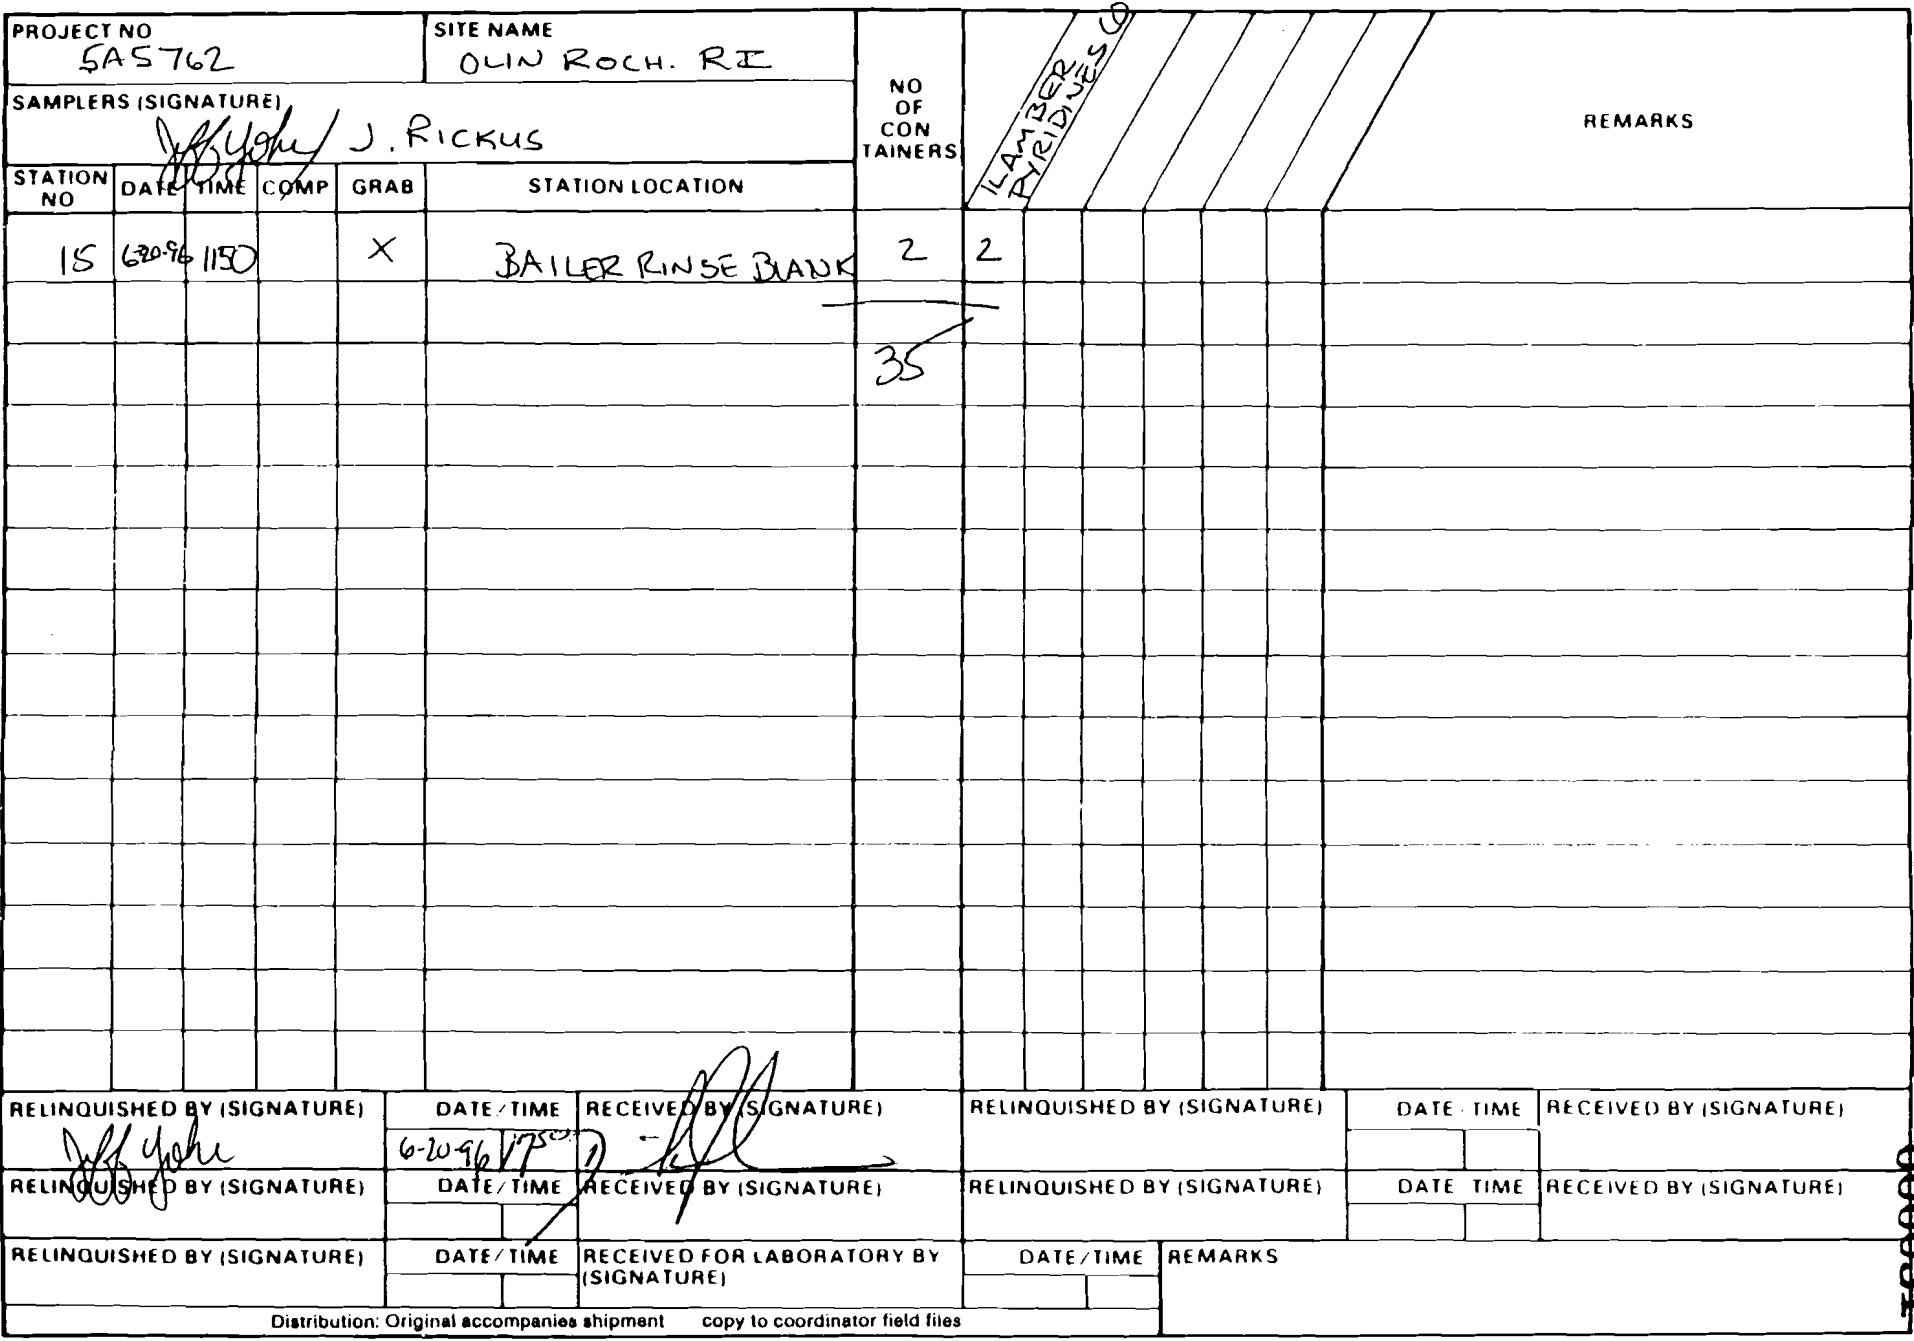 PROJECT NO
5A5762
SITE NAME
OLIN ROCH. RI
SAMPLERS (SIGNATURE)
Jeff Yohe J. RICKUS
NO
OF
CON
TAINERS
1L AMBER
PYRIDINES
REMARKS
STATION
NO
DATE
TIME
COMP
GRAB
STATION LOCATION
15 6-20-96 1150 X BAILER RINSE BLANK 2 2
35
RELINQUISHED BY (SIGNATURE)
Jeff Yohe
DATE/TIME
6-20-96 1750
RECEIVED BY (SIGNATURE)
RELINQUISHED BY (SIGNATURE)
DATE TIME
RECEIVED BY (SIGNATURE)
RELINQUISHED BY (SIGNATURE)
DATE/TIME
RECEIVED BY (SIGNATURE)
RELINQUISHED BY (SIGNATURE)
DATE TIME
RECEIVED BY (SIGNATURE)
RELINQUISHED BY (SIGNATURE)
DATE/TIME
RECEIVED FOR LABORATORY BY
(SIGNATURE)
DATE/TIME
REMARKS
Distribution: Original accompanies shipment copy to coordinator field files